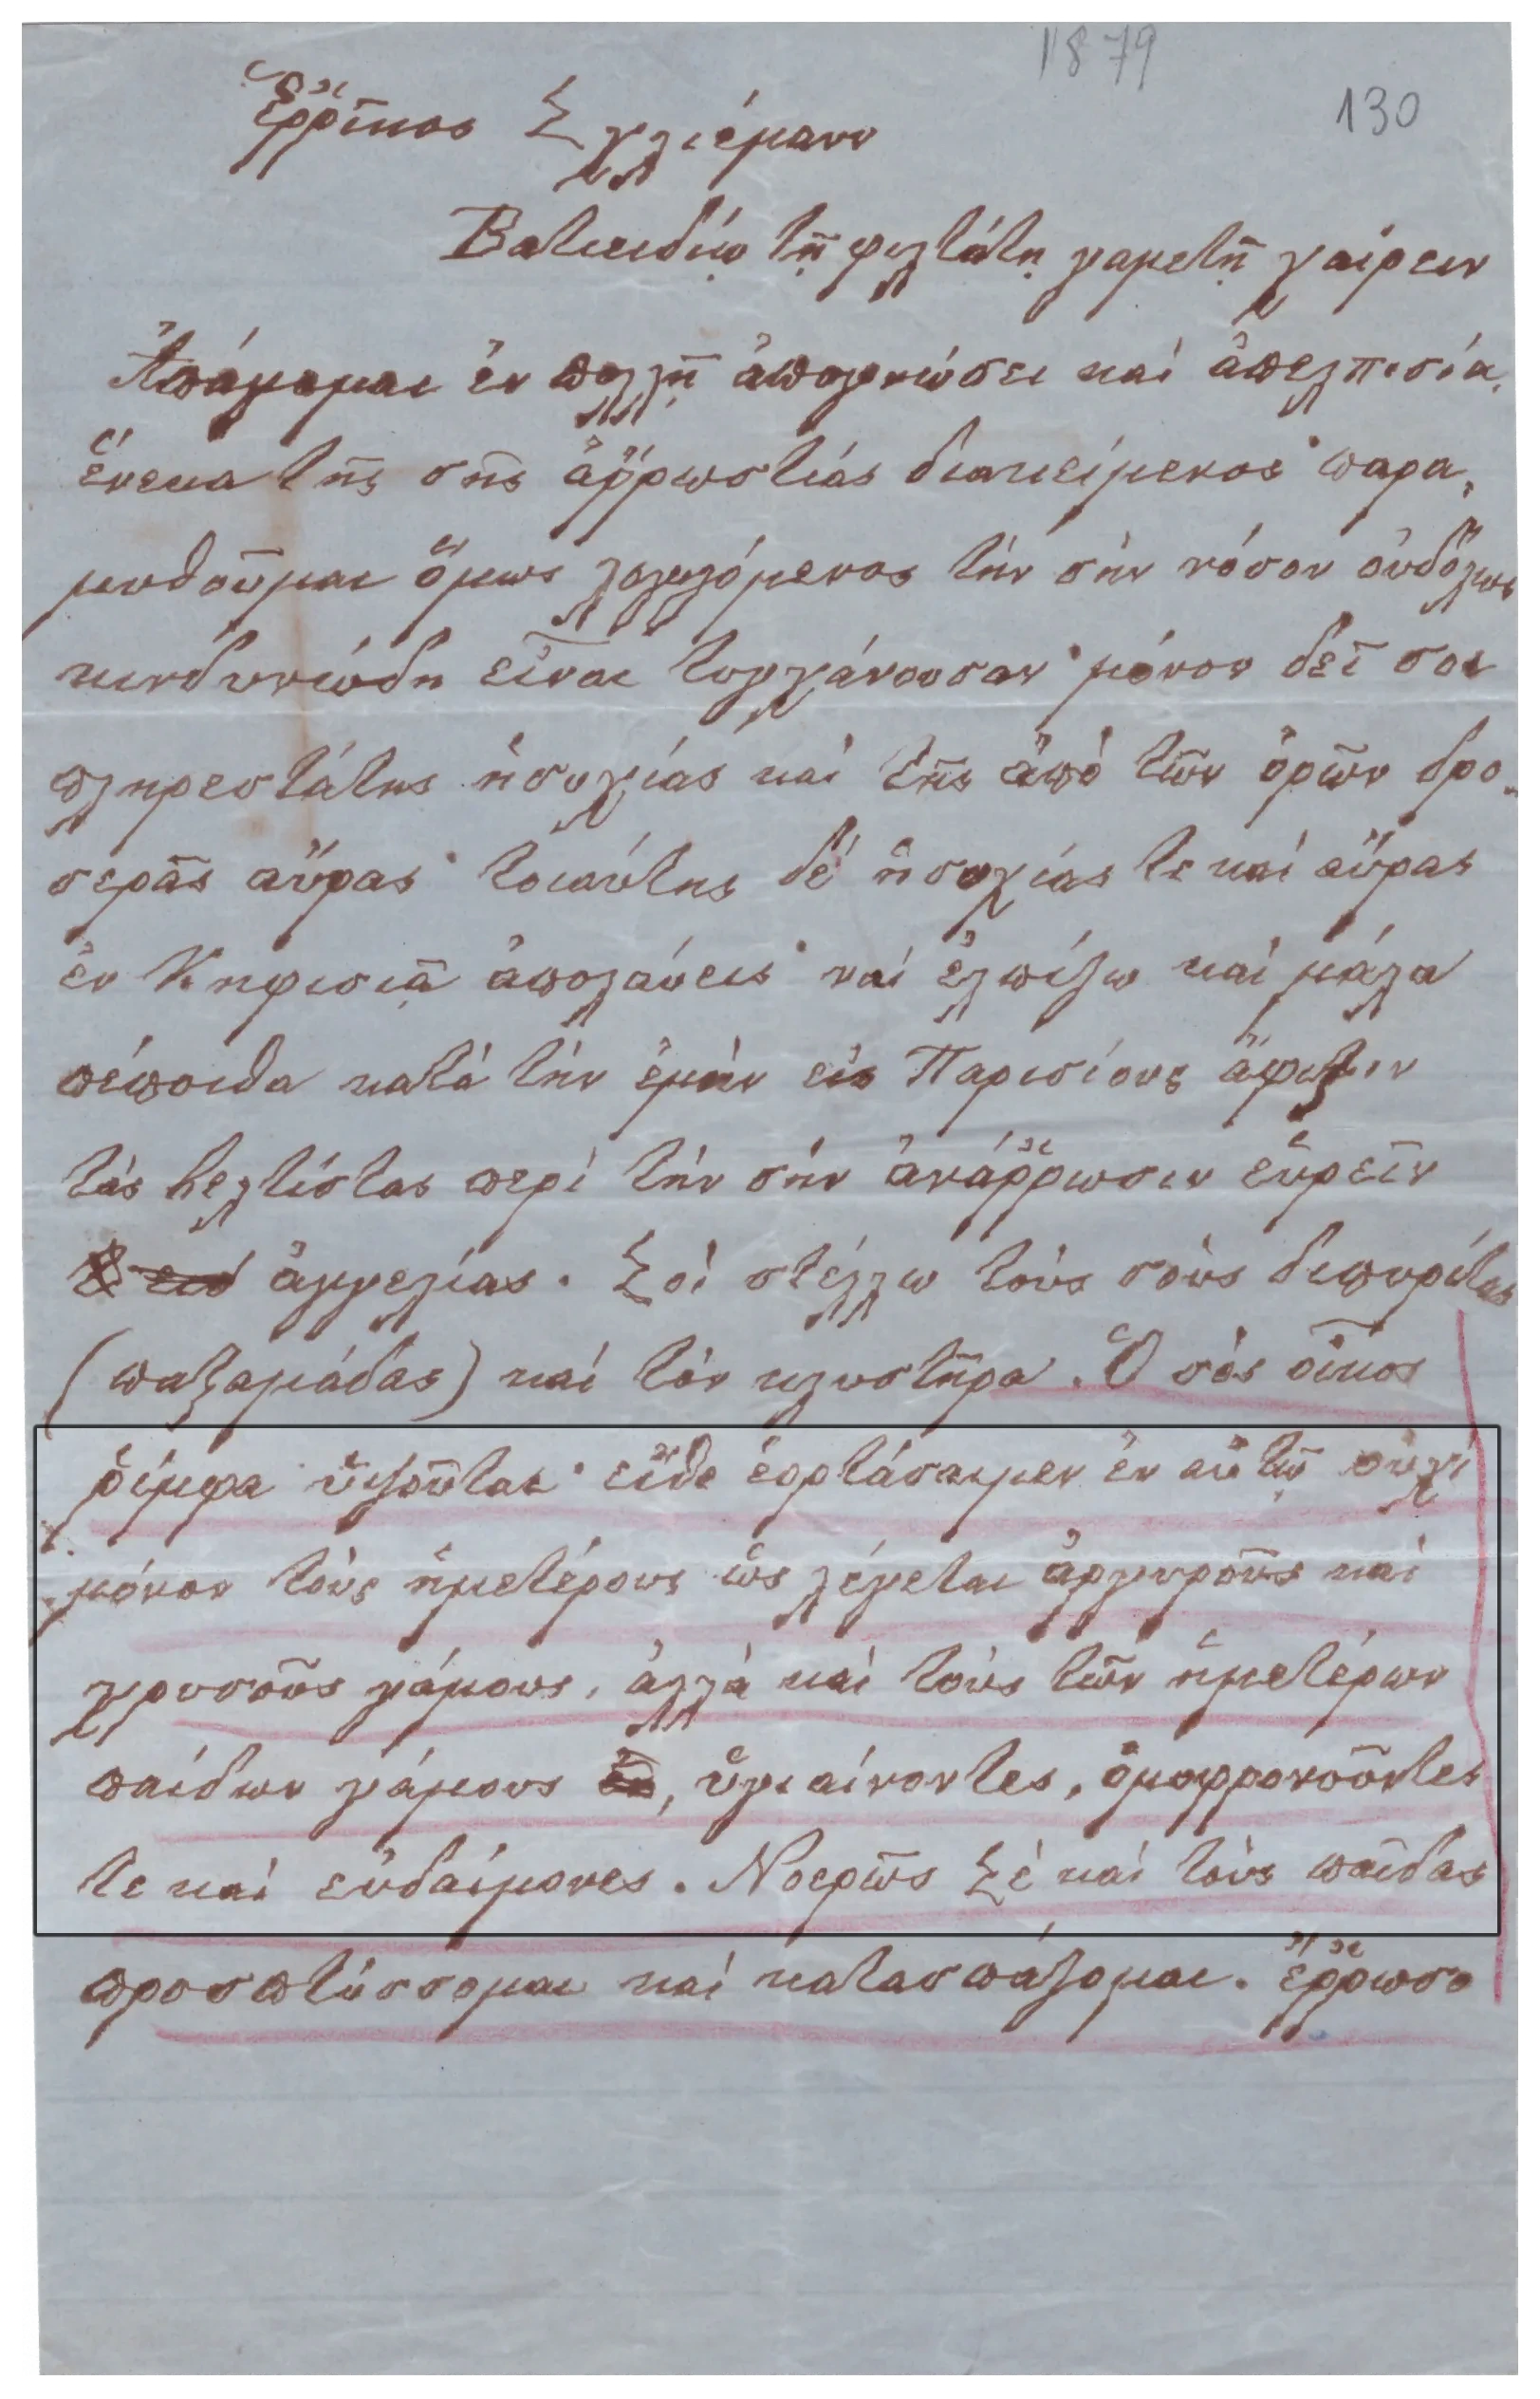 1879
130
Ἐῤῥῖκος Σχλιέμανν
Βατιειδίῳ τῇ φιλτάτῃ γαμετῇ χαίρειν
Ἀπάγομαι ἐν πολλῇ ἀπογνώσει καὶ ἀπελπισίᾳ
ἕνεκα τῆς σῆς ἀῤῥωστίας διακείμενος· παρα-
μυθοῦμαι ὅμως λογιζόμενος τήν σήν νόσον οὐδόλως
κινδυνώδη εἶναι τυγχάνουσαν· μόνον δεῖ σοι
πληρεστάτης ἡσυχίας καί τῆς ἀπό τῶν ὀρῶν δρο-
σερᾶς αὔρας· τοιαύτης δέ ἡσυχίας τε καί αὔρας
ἐν Κηφισιᾷ ἀπολαύεις· καί ἐλπίζω καί μάλα
πέποιθα κατά τήν ἐμήν εἰς Παρισίους ἄφιξιν
τάς βελτίστας περί τήν σήν ἀνάῤῥωσιν εὑρεῖν
ἀγγελίας. Σοί στέλλω τούς σούς διπυρίτας
(παξαμάδας) καί τόν κλυστῆρα. Ὁ σός οἶκος
ῥίμφα ὑψοῦται· εἴθε ἑορτάσαιμεν ἐν αὐτῷ οὐχί
μόνον τούς ἡμετέρους ὡς λέγεται ἀργυροῦς καί
χρυσοῦς γάμους, ἀλλά καί τούς τῶν ἡμετέρων
παίδων γάμους, ὑγιαίνοντες, ὁμοφρονοῦντες
τε καί εὐδαίμονες. Νοερῶς Σέ καί τούς παῖδας
προσπτύσσομαι καί κατασπάζομαι. ἔῤῥωσο